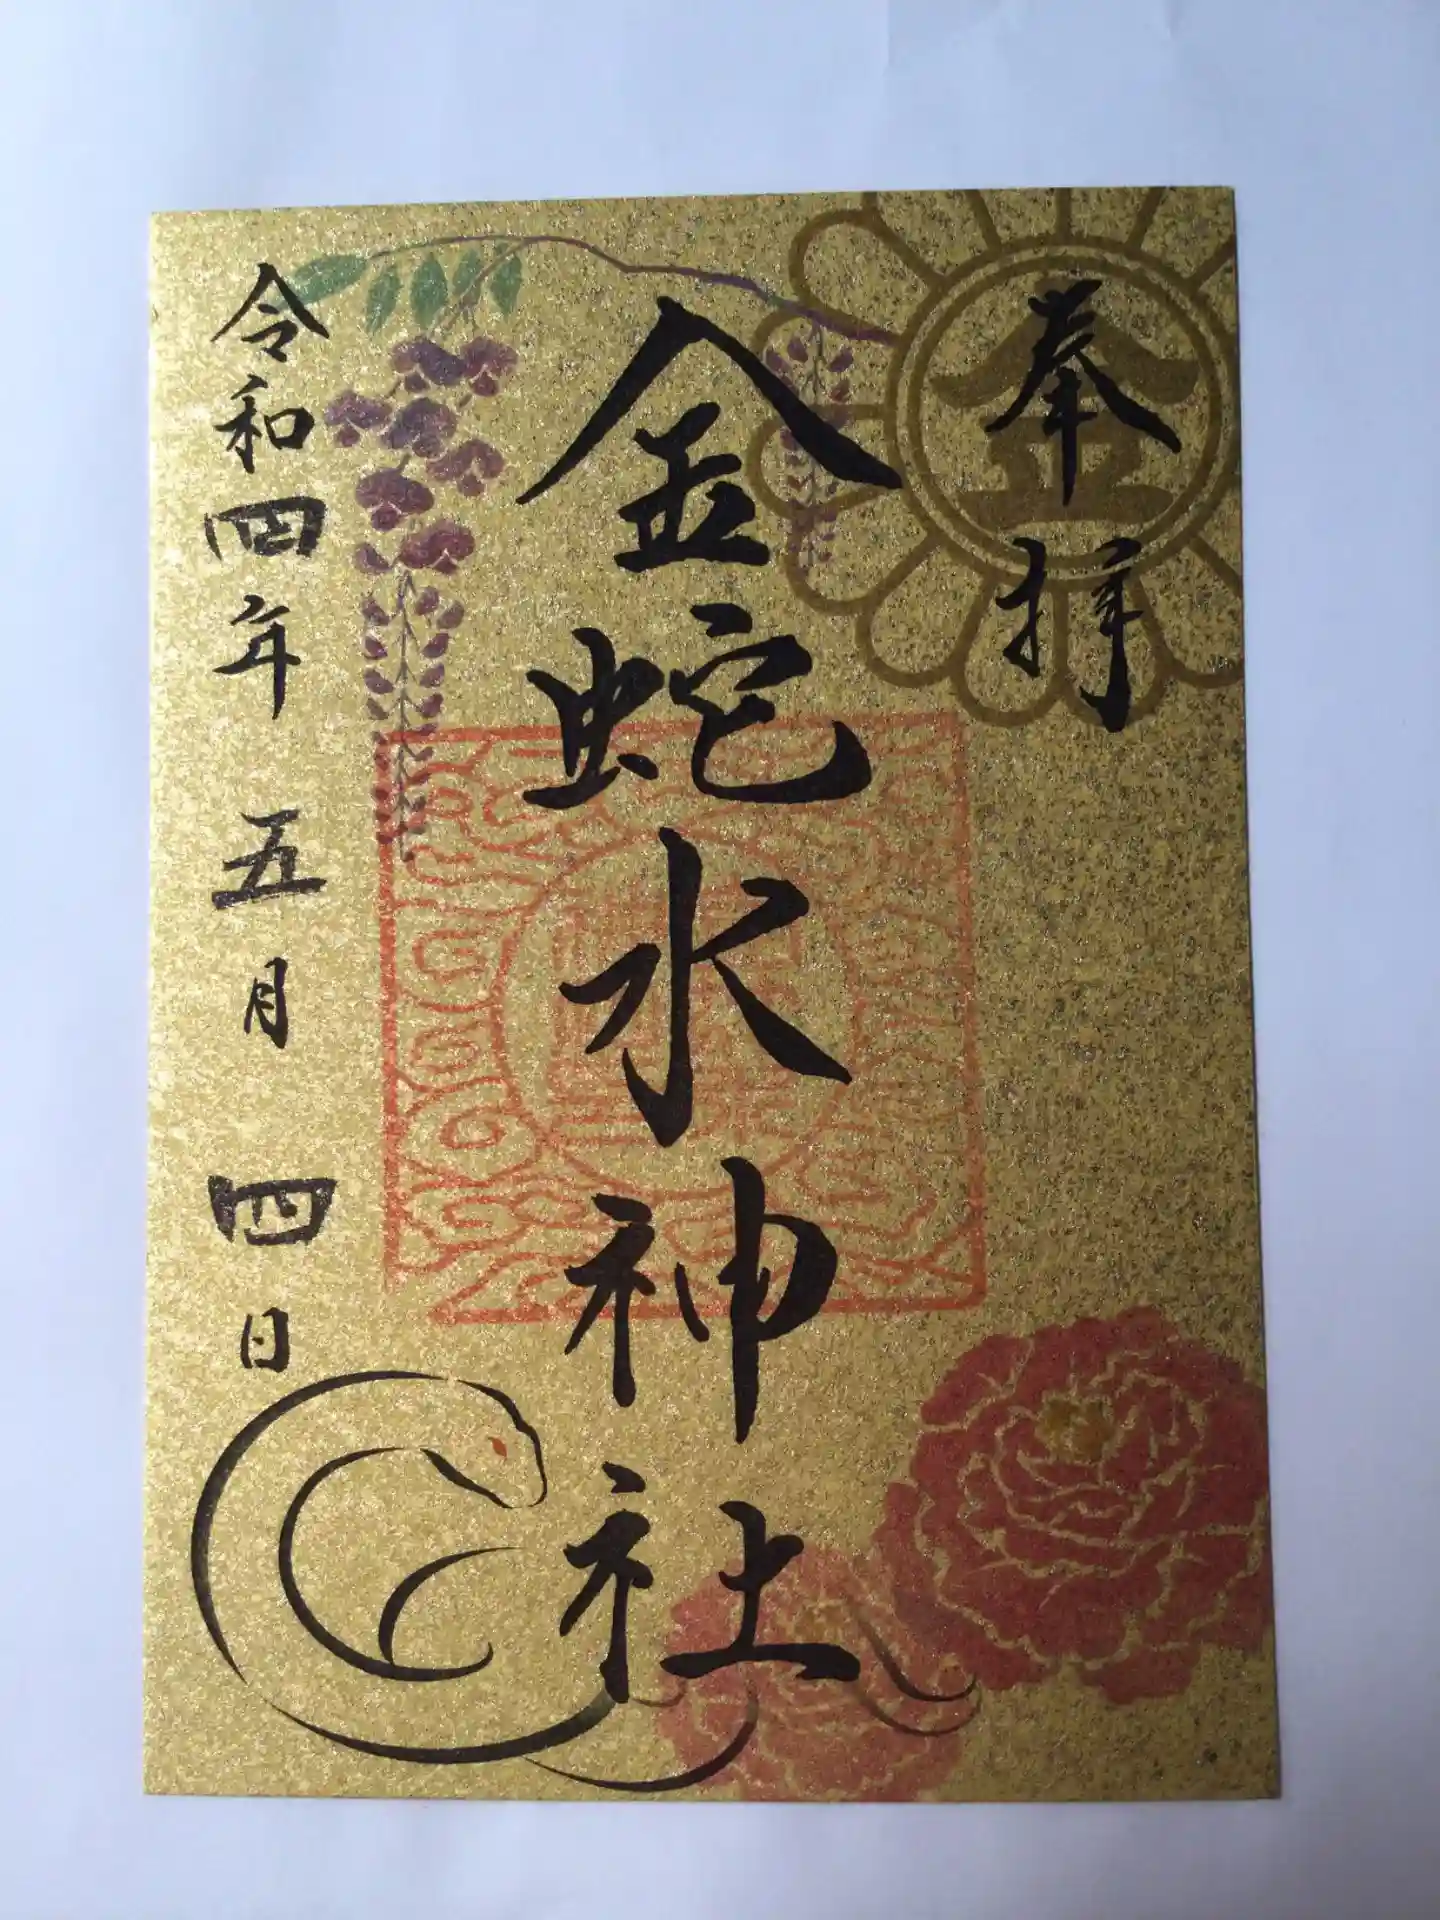 奉拝
金蛇水神社
令和四年五月四日
金